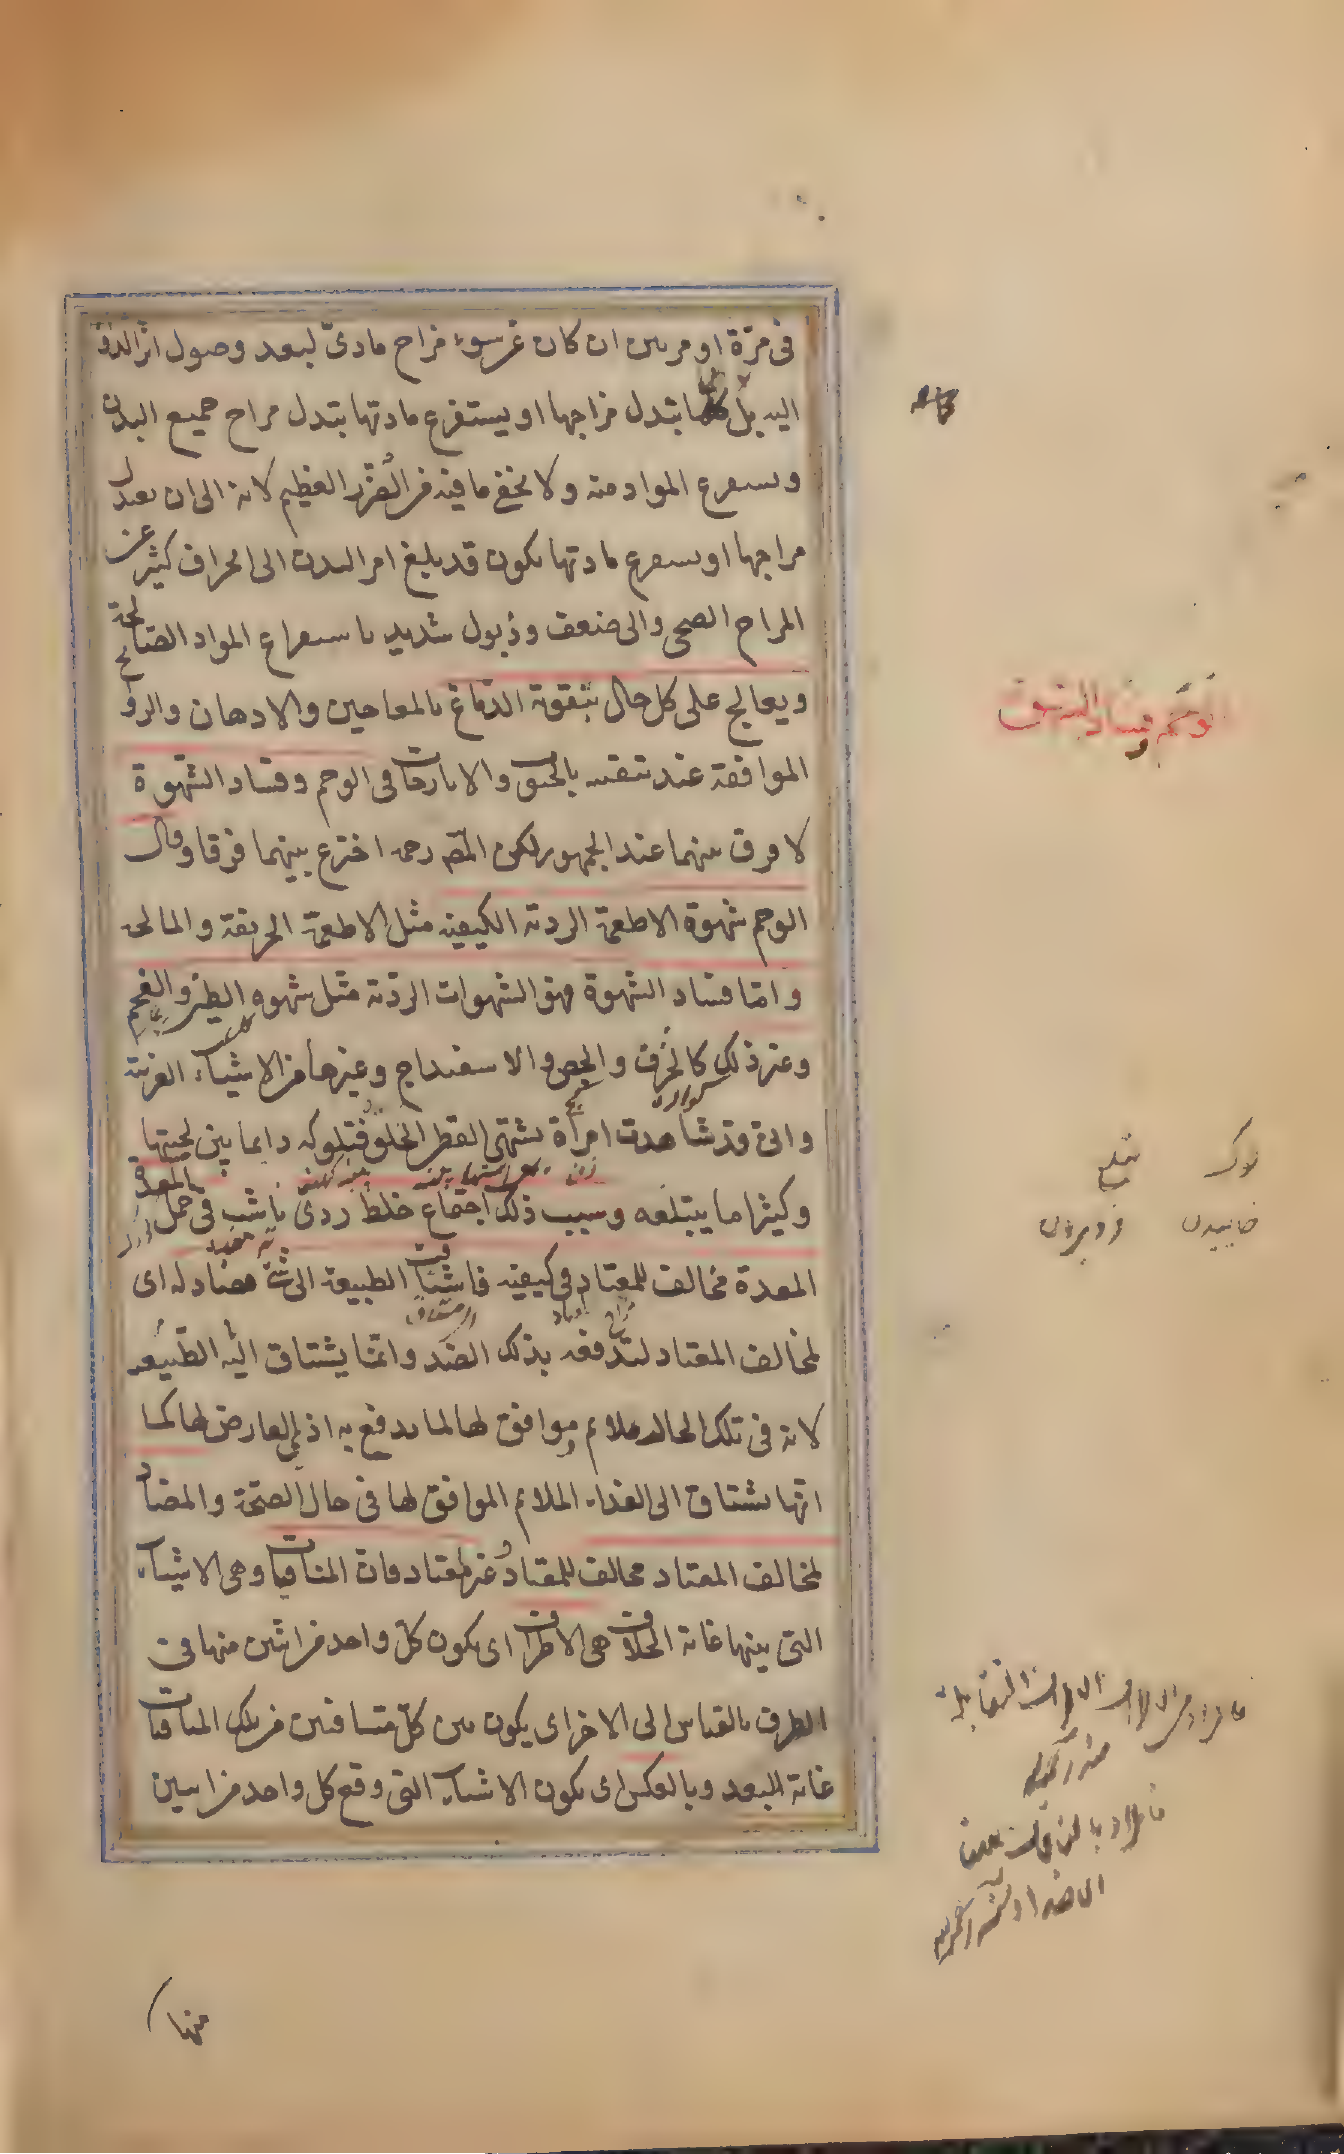 فى مرّة او مرتين ان كان عن سوء مزاج مادىّ لبعد وصول اثر الدواء
اليه بل كلما يتدل مزاجها او يستفرع مادتها بتدل مزاج جميع البدن
ويستفرع المواد منه ولا يخفى ما فيه من الضرر العظيم لانه الى ان يعدل
مزاجها او يستفرع مادتها يكون قد بلغ امر البدن الى انحراف كثير عن
المزاج الصحى والى ضعف وذبول شديد باستفراع المواد الصالحة
ويعالج على كل حال بتقوية الدماغ بالمعاجين والادهان والروائح
الموافقة عند تنقيته بالحبوب والايارجات فى الوحم وفساد الشهوة
لا فرق بينهما عند الجمهور لكن المصّ رحمه اخترع بينهما فرقا وقال
الوحم شهوة الاطعمة الردية الكيفية مثل الاطعمة الحريفة والمالحه
وامّا فساد الشهوة فهو الشهوات الرديّة مثل شهوه الطين والفحم
وغير ذلك كالخزف والجص والاسفنداج وغيرها من الاشياء الغريبة
وانى قد شاهدت امرأة تشتهى القطن الخلق فتلوكه دايما بين لحيتها
وكثيرا ما يبتلعه وسبب ذلك اجتماع خلط ردى ناشب فى خمل
المعدة مخالف للمعتاد فى كيفيته فاشتاقت الطبيعة الى شئ مضاد له اى
لمخالف المعتاد لتدفعه بذلك الضد وانّما يشتاق اليه الطبيعه
لانه فى تلك الحاله ملايم وموافق لها لما يدفع به اذى العارض لها كما
انّها تشتاق الى الغذاء الملايم الموافق لها فى حال الصحّة والمضاد
لمخالف المعتاد مخالف للمعتاد وغير معتاد فان المنافيات وهى الاشياء
التى بينها غاية الخلاف هى الاطراف اى يكون كلّ واحد من اثنين منها فى
الطرف بالقياس الى الاخر اى يكون بين كلّ متنافيين من تلك المنافيات
غاية البعد وبالعكس اى يكون الاشياء التى وقع كل واحد من اثنين
الوحم وفساد الشهوة
لوك
تبلع
خاييدن
فرو بردن
منها